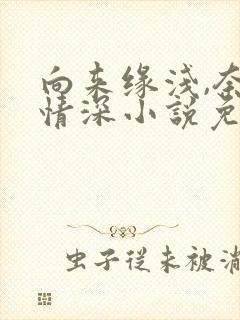 向来缘浅,奈
情深小說免
虫子從未被消